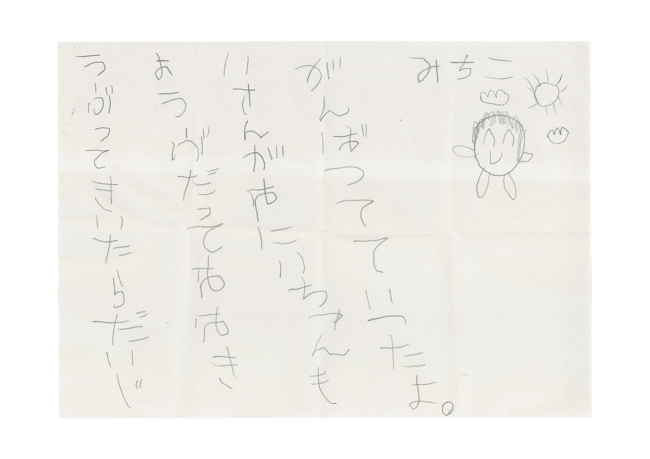 うぶってきいたらだいじ
ょうぶだっておおき
いさんがおにいちゃんも
がんばってていったよ。
みちこ